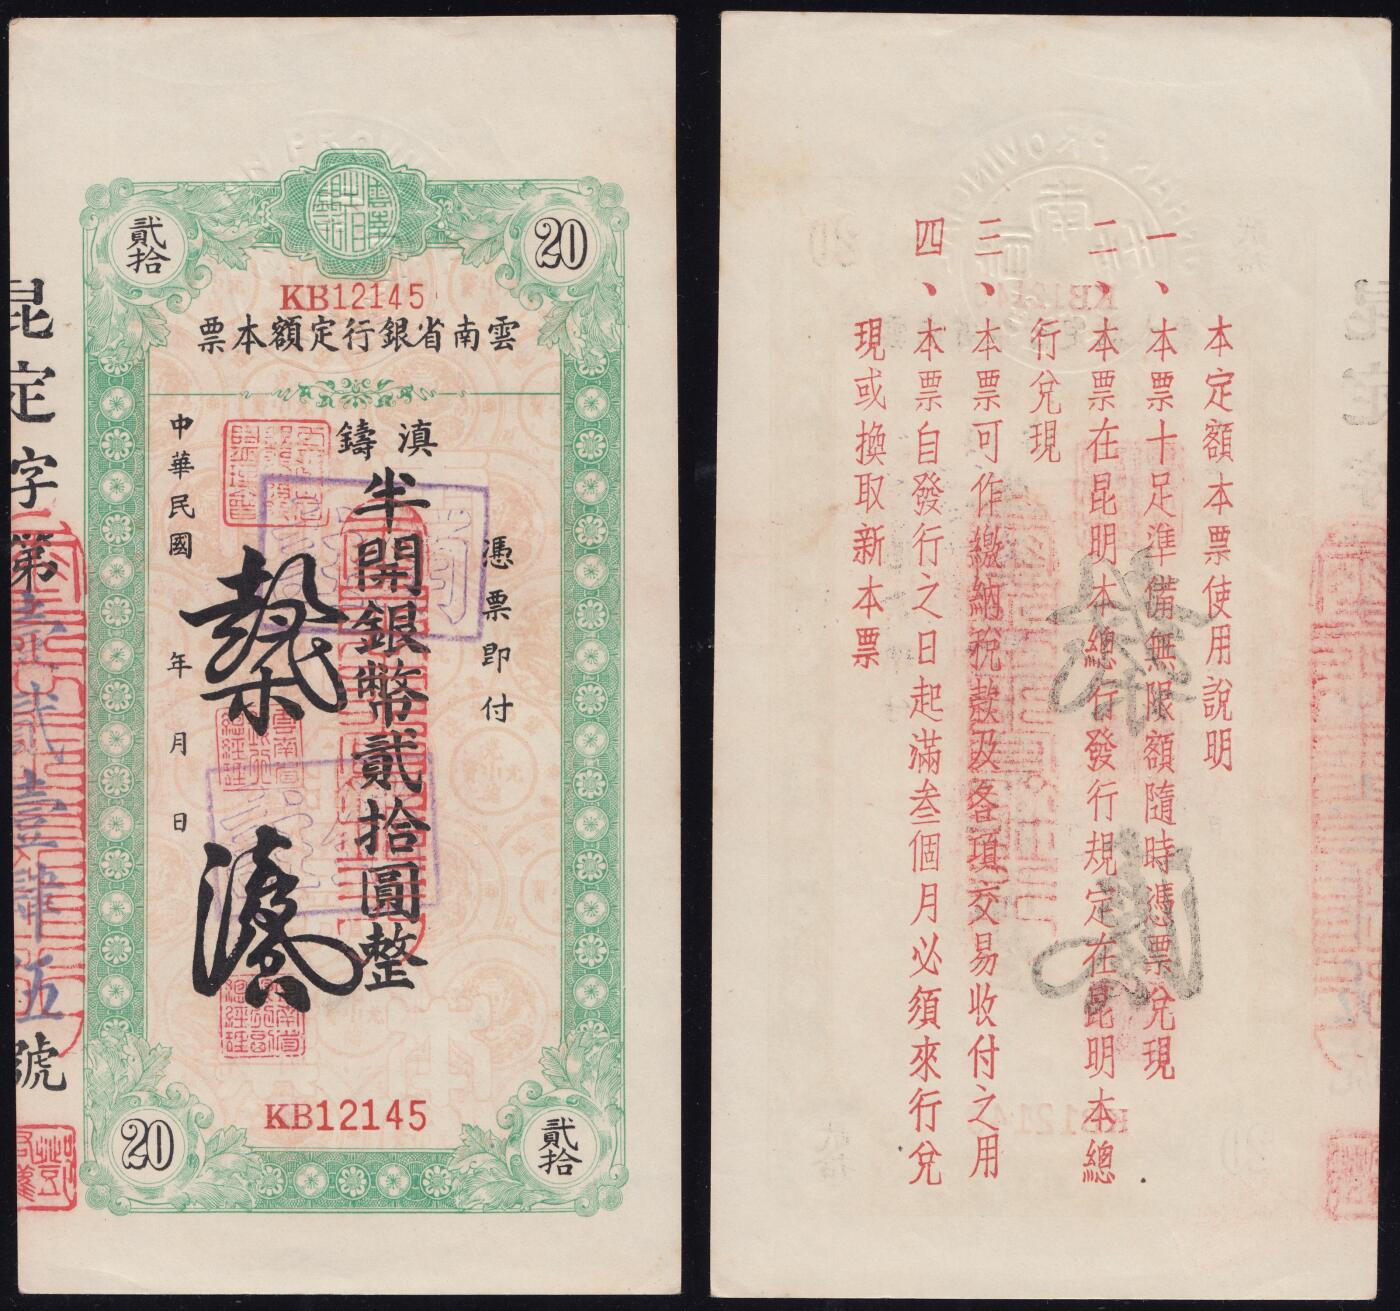 貳拾
20
KB12145
雲南省銀行定額本票
憑票即付
滇鑄
半開銀幣貳拾圓整
中華民國 年 月 日
KB12145
20
貳拾
昆定字第壹貳壹肆伍號
本定額本票使用說明
一、本票十足準備無限額隨時憑票兌現
二、本票在昆明本總行發行規定在昆明本總
行兌現
三、本票可作繳納稅款及各項交易收付之用
四、本票自發行之日起滿叁個月必須來行兌
現或換取新本票